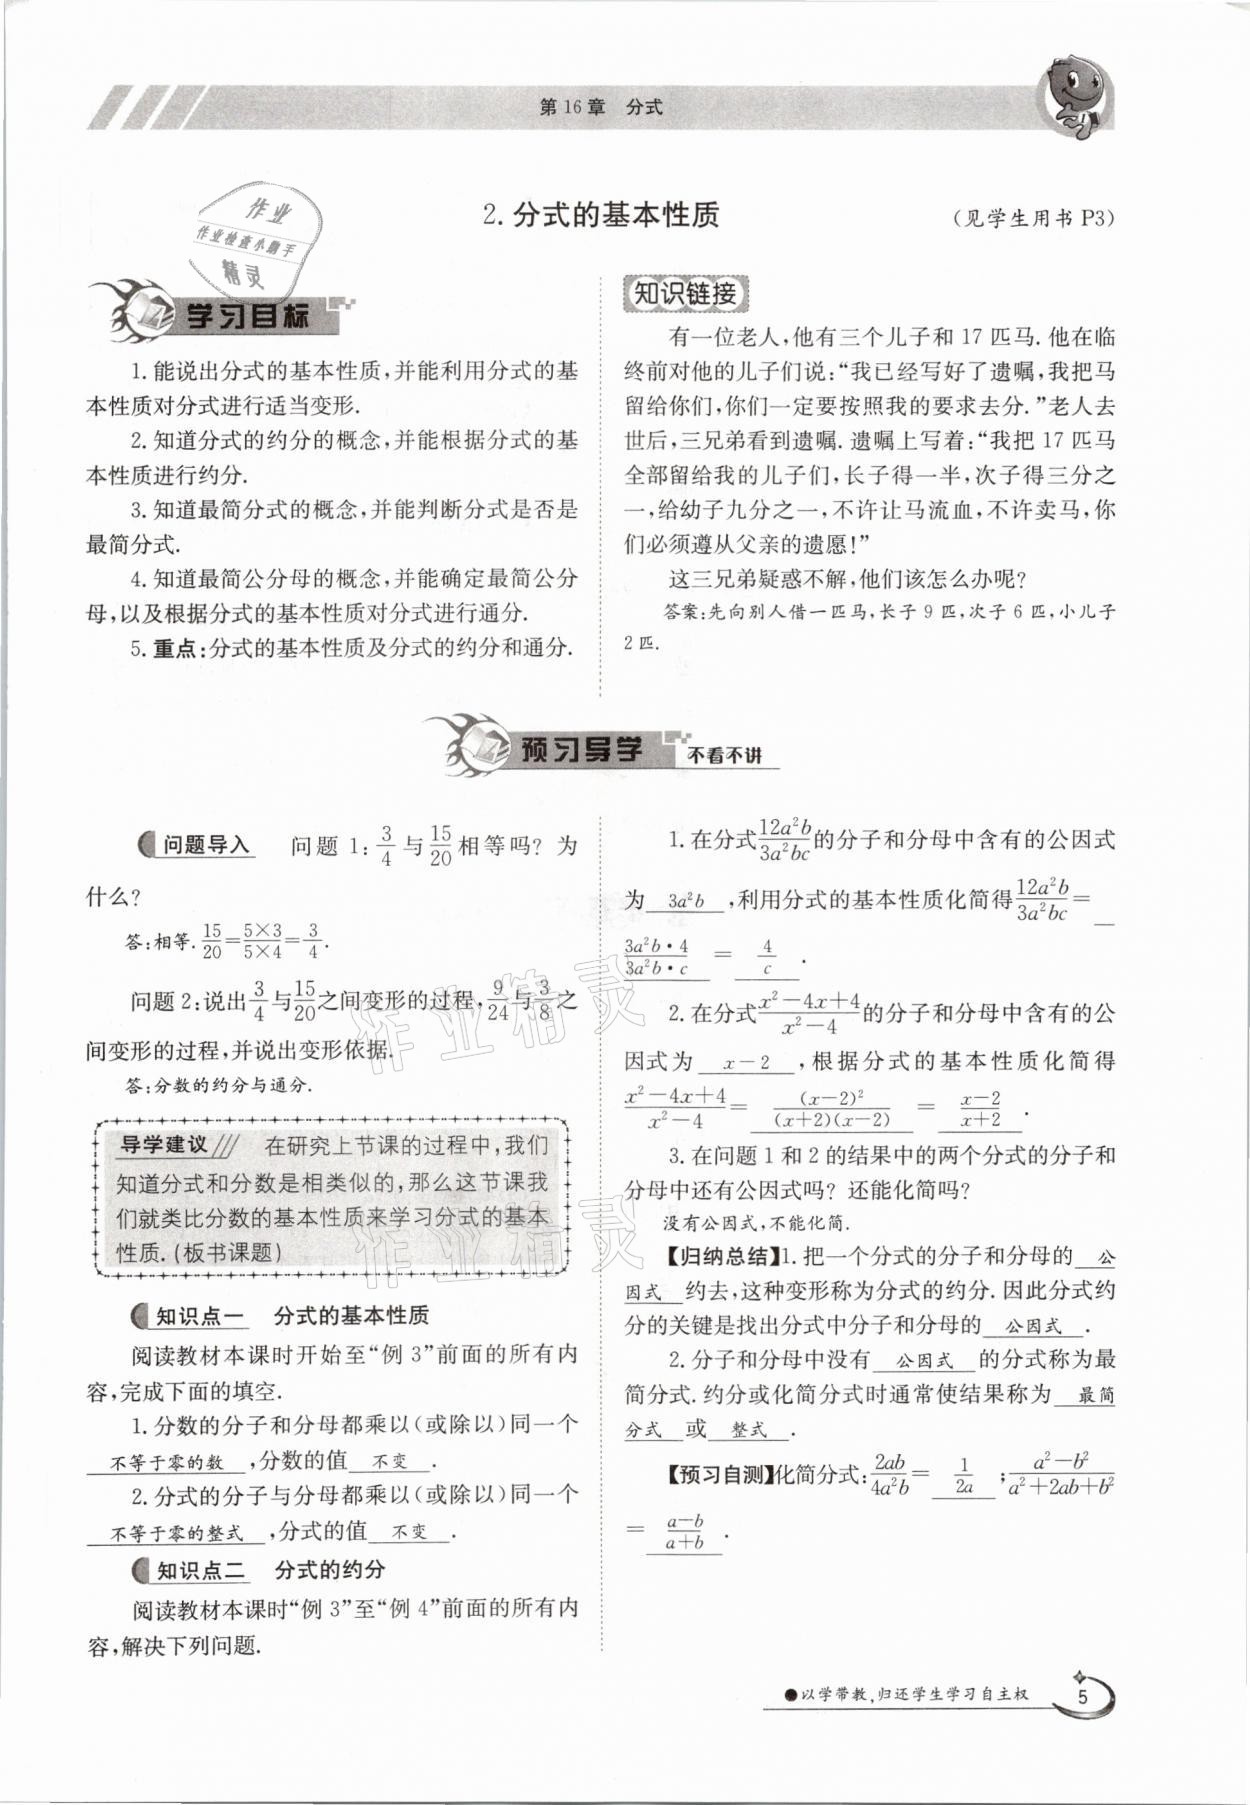 第16章 分式
2. 分式的基本性质
(见学生用书 P3)
作业
作业检查小助手
精灵
学习目标
1. 能说出分式的基本性质,并能利用分式的基
本性质对分式进行适当变形.
2. 知道分式的约分的概念,并能根据分式的基
本性质进行约分.
3. 知道最简分式的概念,并能判断分式是否是
最简分式.
4. 知道最简公分母的概念,并能确定最简公分
母,以及根据分式的基本性质对分式进行通分.
5. 重点:分式的基本性质及分式的约分和通分.
知识链接
有一位老人,他有三个儿子和 17 匹马. 他在临
终前对他的儿子们说:“我已经写好了遗嘱,我把马
留给你们,你们一定要按照我的要求去分.”老人去
世后,三兄弟看到遗嘱. 遗嘱上写着:“我把 17 匹马
全部留给我的儿子们,长子得一半,次子得三分之
一,给幼子九分之一,不许让马流血,不许卖马,你
们必须遵从父亲的遗愿!”
这三兄弟疑惑不解,他们该怎么办呢?
答案:先向别人借一匹马,长子 9 匹,次子 6 匹,小儿子
2 匹.
预习导学 不看不讲
问题导入 问题 1: 3/4 与 15/20 相等吗? 为
什么?
答:相等. 15/20 = 5×3/5×4 = 3/4.
问题 2:说出 3/4 与 15/20 之间变形的过程, 9/24 与 3/8 之
间变形的过程,并说出变形依据.
答:分数的约分与通分.
导学建议 在研究上节课的过程中,我们
知道分式和分数是相类似的,那么这节课我
们就类比分数的基本性质来学习分式的基本
性质.(板书课题)
知识点一 分式的基本性质
阅读教材本课时开始至“例 3”前面的所有内
容,完成下面的填空.
1. 分数的分子和分母都乘以(或除以)同一个
不等于零的数 ,分数的值 不变 .
2. 分式的分子与分母都乘以(或除以)同一个
不等于零的整式 ,分式的值 不变 .
知识点二 分式的约分
阅读教材本课时“例 3”至“例 4”前面的所有内
容,解决下列问题.
1. 在分式 12a²b/3a²bc 的分子和分母中含有的公因式
为 3a²b ,利用分式的基本性质化简得 12a²b/3a²bc =
3a²b·4/3a²b·c = 4/c .
2. 在分式 x²-4x+4/x²-4 的分子和分母中含有的公
因式为 x-2 ,根据分式的基本性质化简得
x²-4x+4/x²-4 = (x-2)²/(x+2)(x-2) = x-2/x+2 .
3. 在问题 1 和 2 的结果中的两个分式的分子和
分母中还有公因式吗? 还能化简吗?
没有公因式,不能化简.
【归纳总结】1. 把一个分式的分子和分母的 公
因式 约去,这种变形称为分式的约分. 因此分式约
分的关键是找出分式中分子和分母的 公因式 .
2. 分子和分母中没有 公因式 的分式称为最
简分式. 约分或化简分式时通常使结果称为 最简
分式 或 整式 .
【预习自测】化简分式: 2ab/4a²b = 1/2a ; a²-b²/a²+2ab+b²
= a-b/a+b .
作业精灵
作业精灵
●以学带教,归还学生学习自主权 5